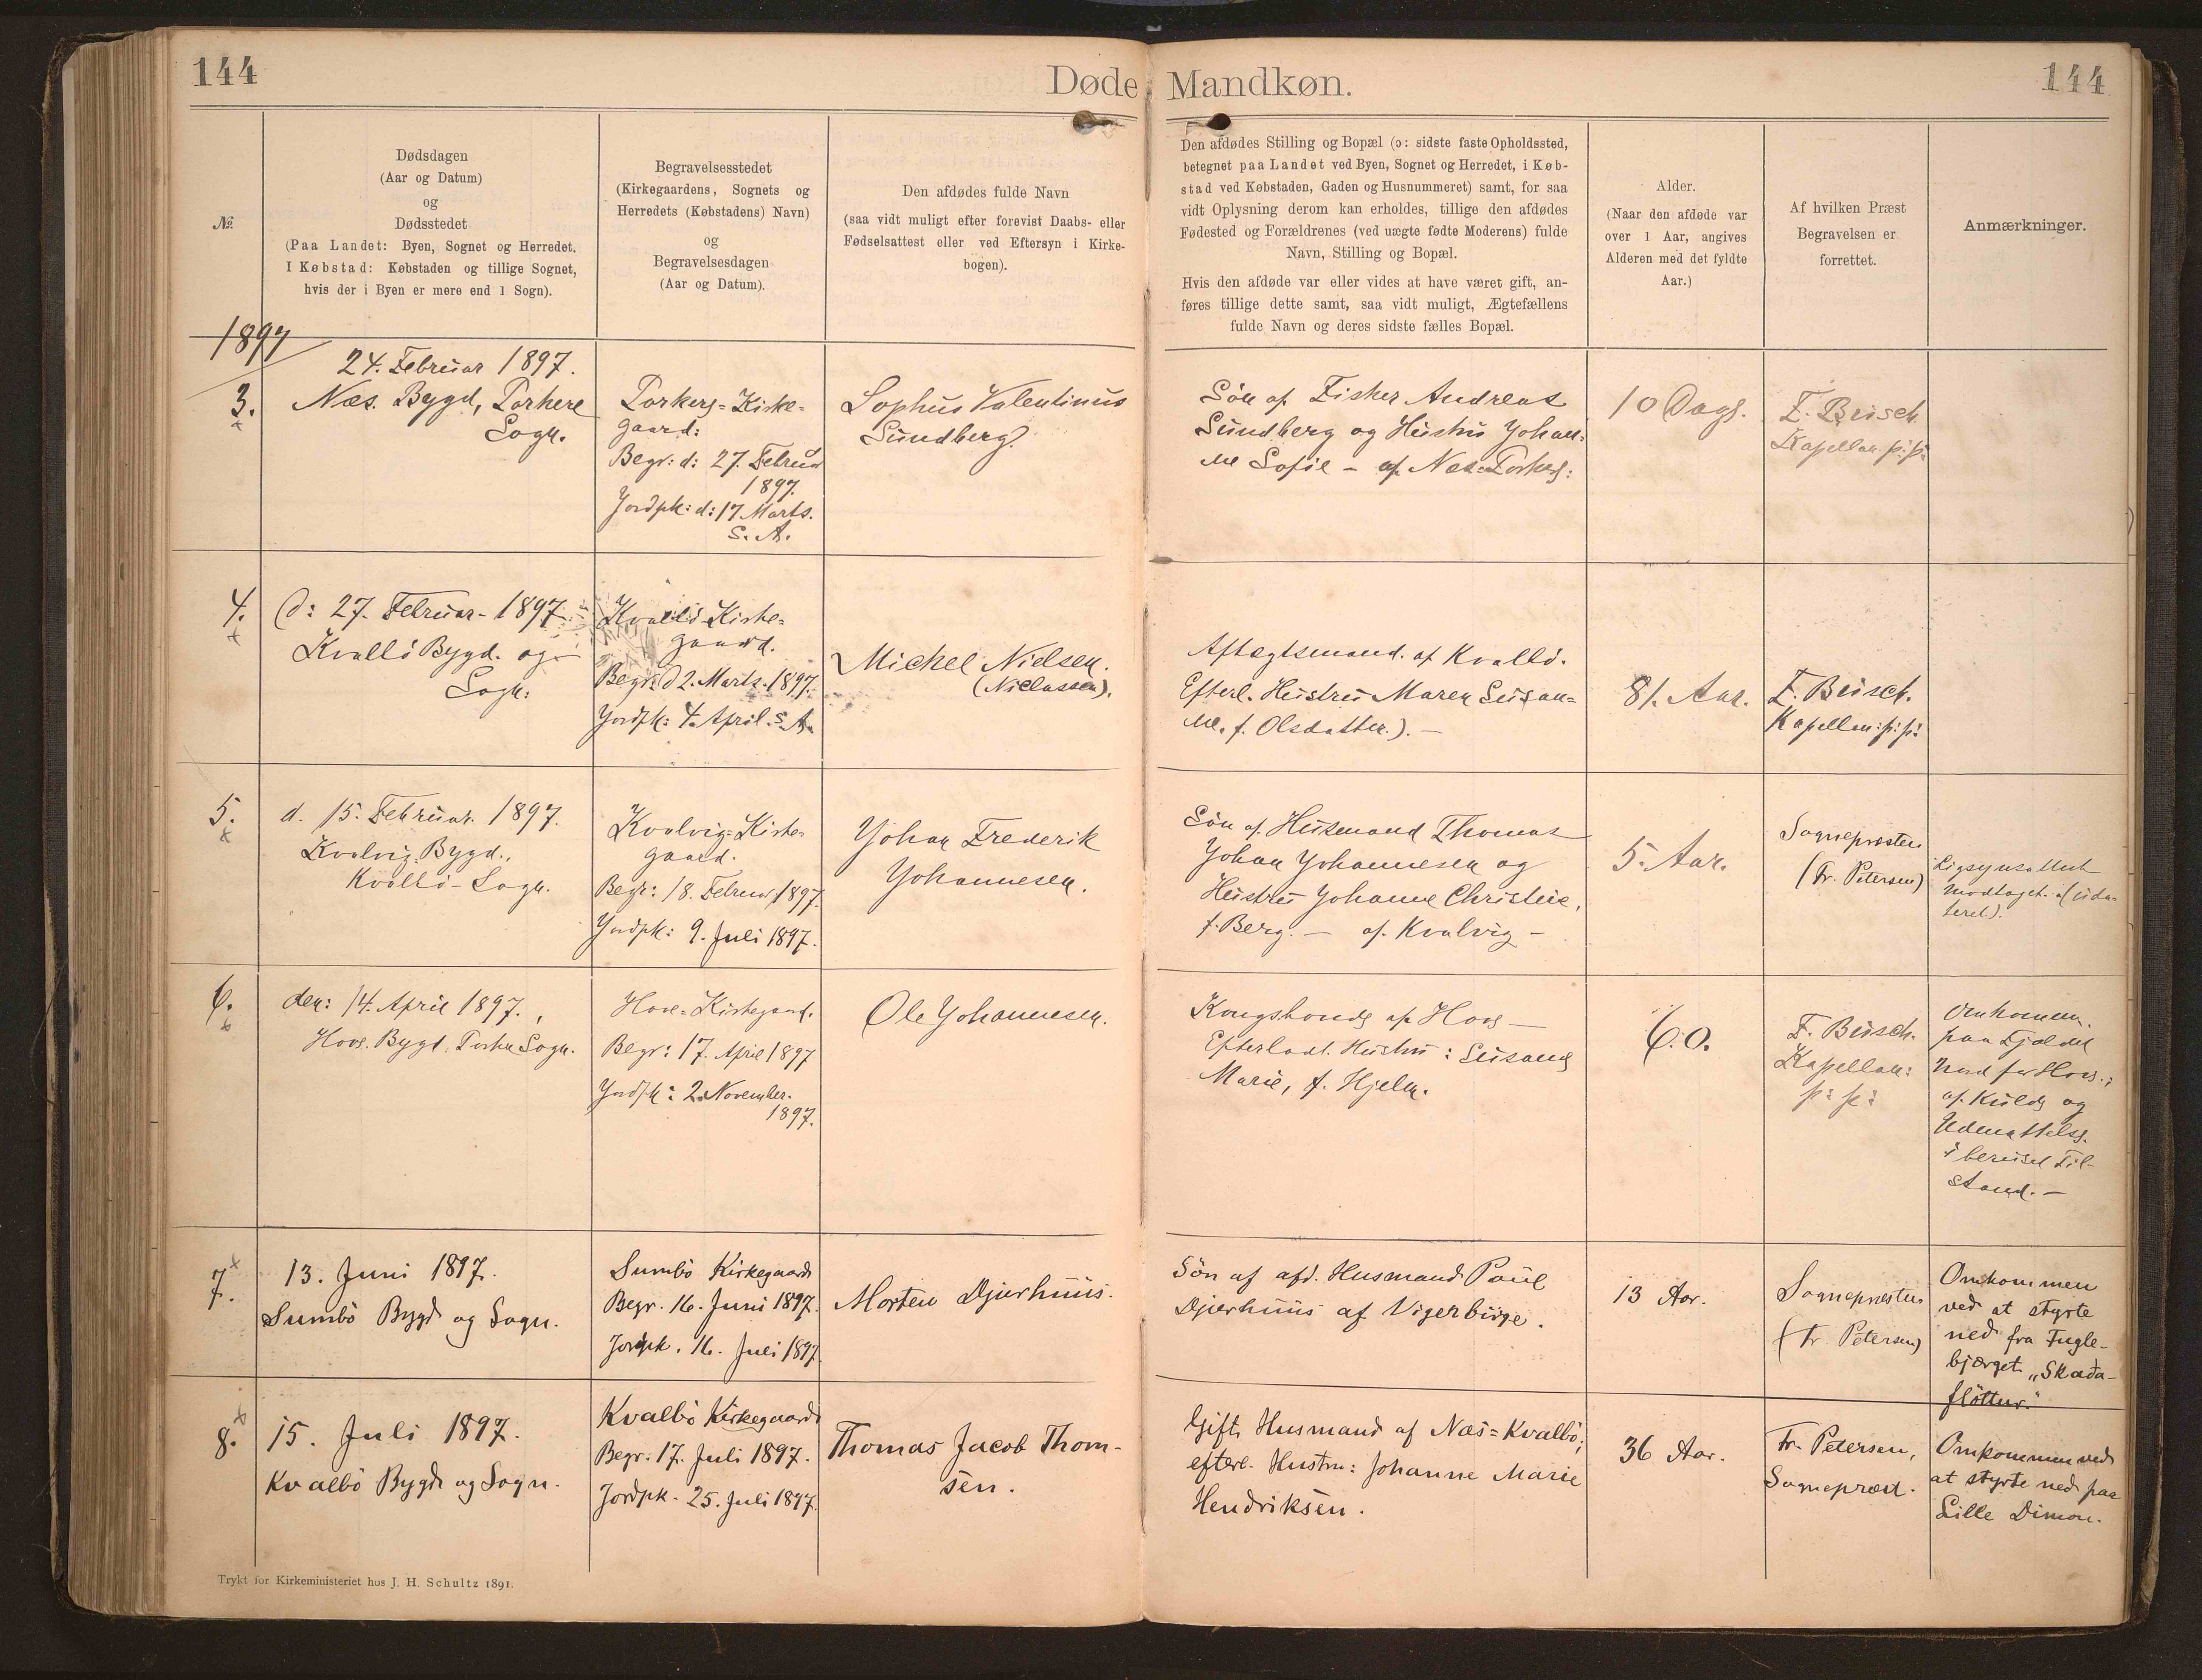 144
Døde
Mandkøn.
144
№
Dødsdagen
(Aar og Datum)
og
Dødsstedet
(Paa Landet: Byen, Sognet og Herredet.
I Købstad: Købstaden og tillige Sognet,
hvis der i Byen er mere end 1 Sogn).
Begravelsesstedet
(Kirkegaardens, Sognets og
Herredets (Købstadens) Navn)
og
Begravelsesdagen
(Aar og Datum).
Den afdødes fulde Navn
(saa vidt muligt efter forevist Daabs- eller
Fødselsattest eller ved Eftersyn i Kirke-
bogen).
Den afdødes Stilling og Bopæl (ɔ: sidste faste Opholdssted,
betegnet paa Landet ved Byen, Sognet og Herredet, i Køb-
stad ved Købstaden, Gaden og Husnummeret) samt, for saa
vidt Oplysning derom kan erholdes, tillige den afdødes
Fødested og Forældrenes (ved uægte fødte Moderens) fulde
Navn, Stilling og Bopæl.
Hvis den afdøde var eller vides at have været gift, an-
føres tillige dette samt, saa vidt muligt, Ægtefællens
fulde Navn og deres sidste fælles Bopæl.
Alder.
(Naar den afdøde var
over 1 Aar, angives
Alderen med det fyldte
Aar.)
Af hvilken Præst
Begravelsen er
forrettet.
Anmærkninger.
1897
3.
24. Februar 1897.
Næs. Bygd, Porkere
Sogn.
Porkere-Kirke-
gaard:
Begr: d: 27. Februar
1897.
Jordpk: d: 17. Marts.
S. A.
Sophus Valentinus
Sundberg.
Søn af Fisker Andreas
Sundberg og Hustru Johan-
ne Sofie - af Næs Porkere:
10 Dage.
F. Busch
Kapellan p: p:
4.
d: 27. Februar - 1897
Kvalbö Bygd. og
Sogn:
Kvalbö-Kirke-
gaard.
Begr: d 2. Marts. 1897.
Jordpk: 4. April. s. A.
Michel Nielsen.
(Niclassen).
Aftægtsmand. af Kvalbö.
Efterl. Hustru Maren Susan-
ne, f. Olsdatter.). -
81. Aar.
F. Busch.
Kapellan: p: p:
5.
d. 15. Februar. 1897.
Kvalvig. Bygd.,
Kvalbö - Sogn.
Kvalvig-Kirke-
gaard.
Begr: 18. Februar 1897.
Jordpk: 9. Juli 1897.
Johan Frederik
Johannesen.
Søn af Husmand Thomas
Johan Johannesen og
Hustru Johanne Christine,
f. Berg. - af Kvalvig -
5. Aar.
Sognepræsten
(Fr. Petersen)
Ligsynsattest
modtaget. (uda-
teret).
6.
den: 14. April 1897.,
Hove. Bygd. Porkere Sogn.
Hove-Kirkegaard.
Begr: 17. April 1897
Jordpk: 2. November.
1897.
Ole Johannesen.
Kongsbonde af Hove -
Efterladt. Hustru: Susanne
Marie, f. Hjelm.
60.
F. Busch.
Kapellan:
p: p:
Omkommen.
paa Fjældet
Nord for Hove.;
af Kulde og
Udmattelse.
i beruset Til-
stand. -
7.
13. Juni 1897.
Sumbö Bygd og Sogn.
Sumbö Kirkegaard
Begr. 16. Juni 1897.
Jordpk. 16. Juli 1897.
Morten Djurhuus.
Søn af afd. Husmand Poul
Djurhuus af Vigerbirge.
13 Aar.
Sognepræsten
(Fr. Petersen)
Omkommen
ved at styrte
ned fra Fugle-
bjerget „Skada-
flöttur.“
8.
15. Juli 1897.
Kvalbö Bygd og Sogn.
Kvalbö Kirkegaard
Begr. 17. Juli 1897.
Jordpk. 25. Juli 1897.
Thomas Jacob Thom-
sen.
Gift, Husmand af Næs-Kvalbö;
efterl. Hustru: Johanne Marie
Hendriksen.
36 Aar.
Fr. Petersen,
Sognepræst.
Omkommen ved
at styrte ned paa
Lille Dimon.
Trykt for Kirkeministeriet hos J. H. Schultz 1891.